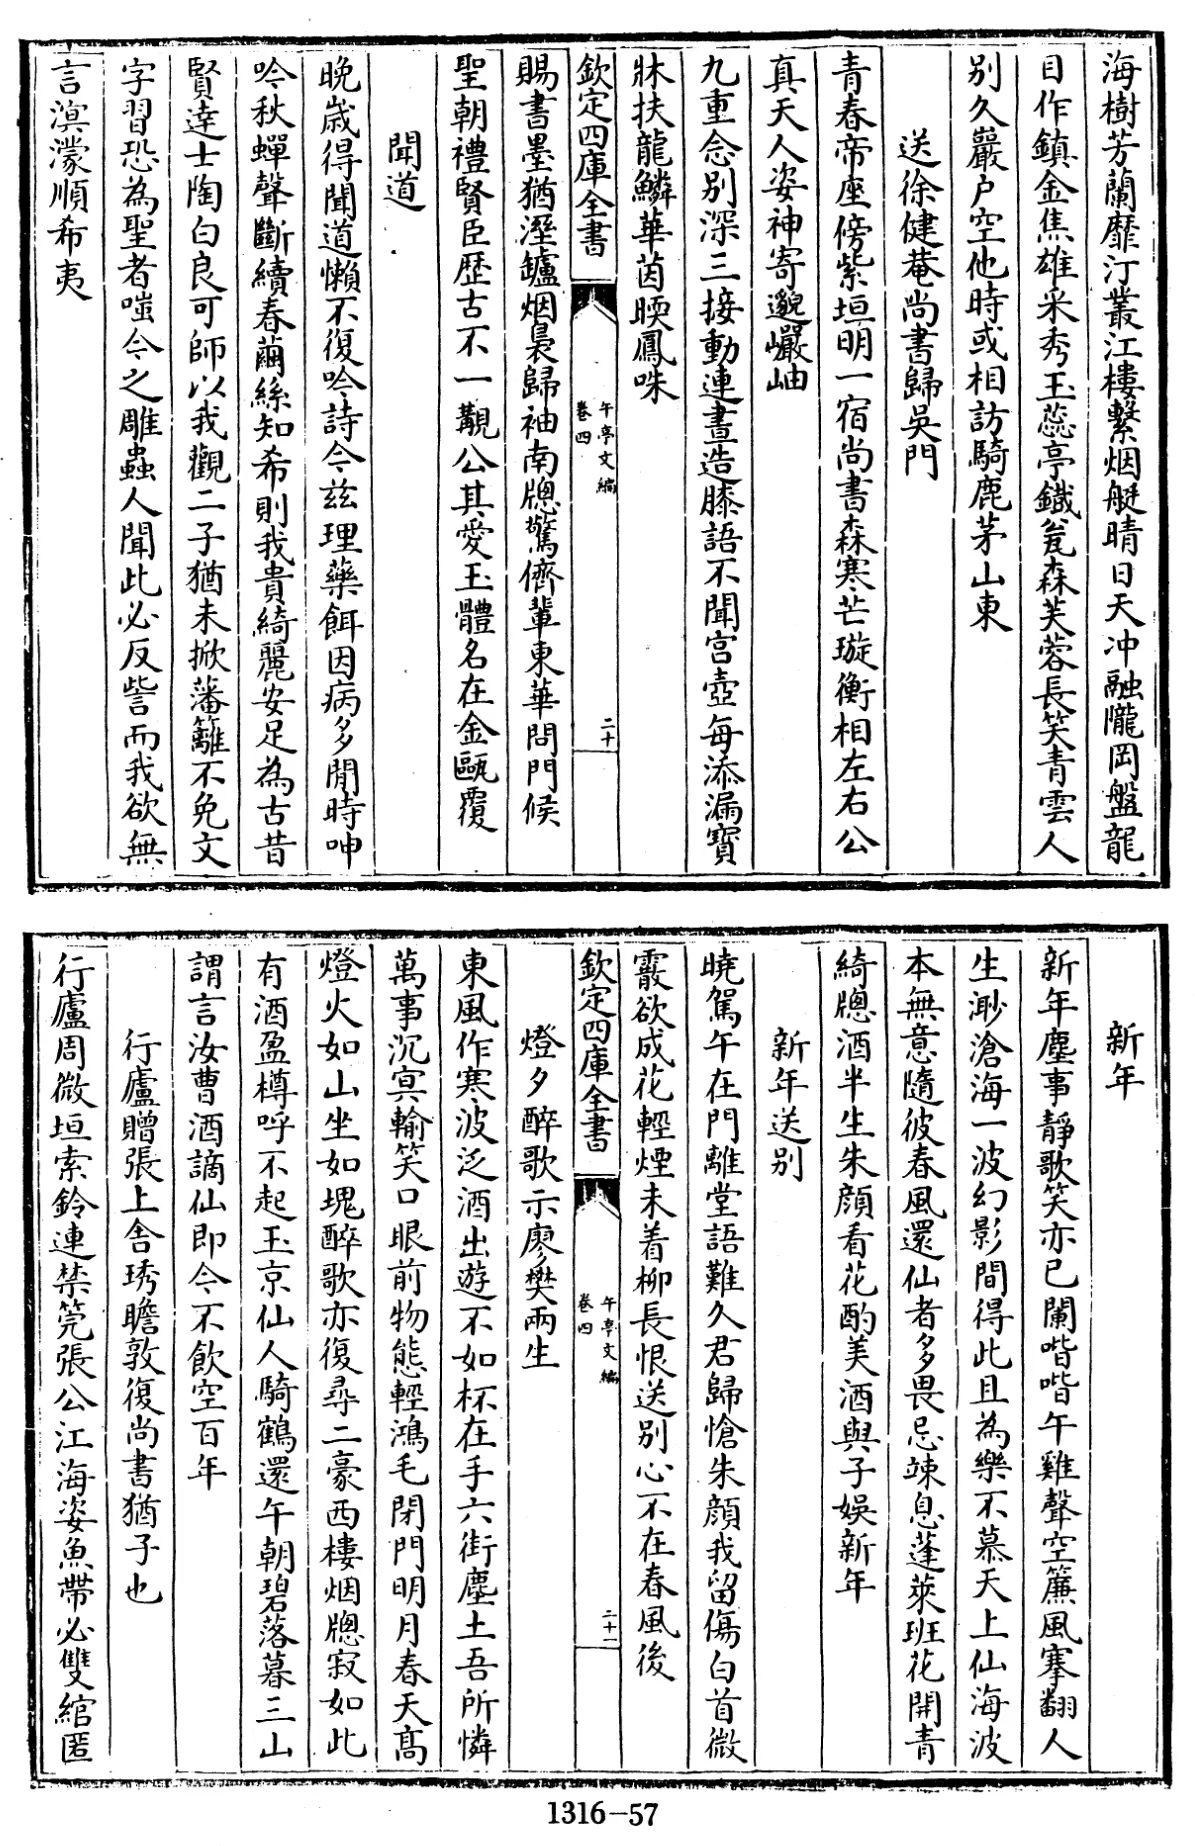 海樹芳蘭靡汀叢江樓繫烟艇晴日天冲融隴岡盤龍
目作鎮金焦雄采秀玉蕊亭鐡瓮森芙蓉長笑青雲人
別久巖户空他時或相訪騎鹿茅山東
送徐健菴尚書歸吳門
青春帝座傍紫垣明一宿尚書森寒芒璇衡相左右公
真天人姿神寄邈巖岫
九重念别深三接動連晝造膝語不聞宫壺每添漏寶
牀扶龍鱗華茵暎鳳咮
欽定四庫全書
午亭文編
卷四
二十
賜書墨猶溼鑪烟裊歸袖南牕驚儕輩東華問門候
聖朝禮賢臣歴古不一觀公其愛玉體名在金甌覆
聞道
晚歳得聞道懶不復吟詩今兹理藥餌因病多閒時呻
吟秋蟬聲斷續春繭絲知希則我貴綺麗安足為古昔
賢達士陶白良可師以我觀二子猶未掀藩籬不免文
字習恐為聖者嗤今之雕蟲人聞此必反訾而我欲無
言溟濛順希夷
新年
新年塵事靜歌笑亦已闌喈喈午雞聲空簾風搴翻人
生渺滄海一波幻影間得此且為樂不慕天上仙海波
本無意隨彼春風還仙者多畏忌竦息蓬萊班花開青
綺牕酒半生朱顔看花酌美酒與子娛新年
新年送别
曉駕午在門離堂語難久君歸愴朱顔我留傷白首微
霰欲成花輕煙未着柳長恨送别心不在春風後
欽定四庫全書
午亭文編
卷四
二十一
燈夕醉歌示廖樊兩生
東風作寒波泛酒出遊不如杯在手六街塵土吾所憐
萬事沉冥輸笑口眼前物態輕鴻毛閉門明月春天高
燈火如山坐如塊醉歌亦復尋二豪西樓烟牕寂如此
有酒盈樽呼不起玉京仙人騎鶴還午朝碧落暮三山
謂言汝曹酒謫仙即今不飲空百年
行廬贈張上舍琇瞻敦復尚書猶子也
行廬周微垣索鈴連禁筦張公江海姿魚帶必雙綰匿
1316-57